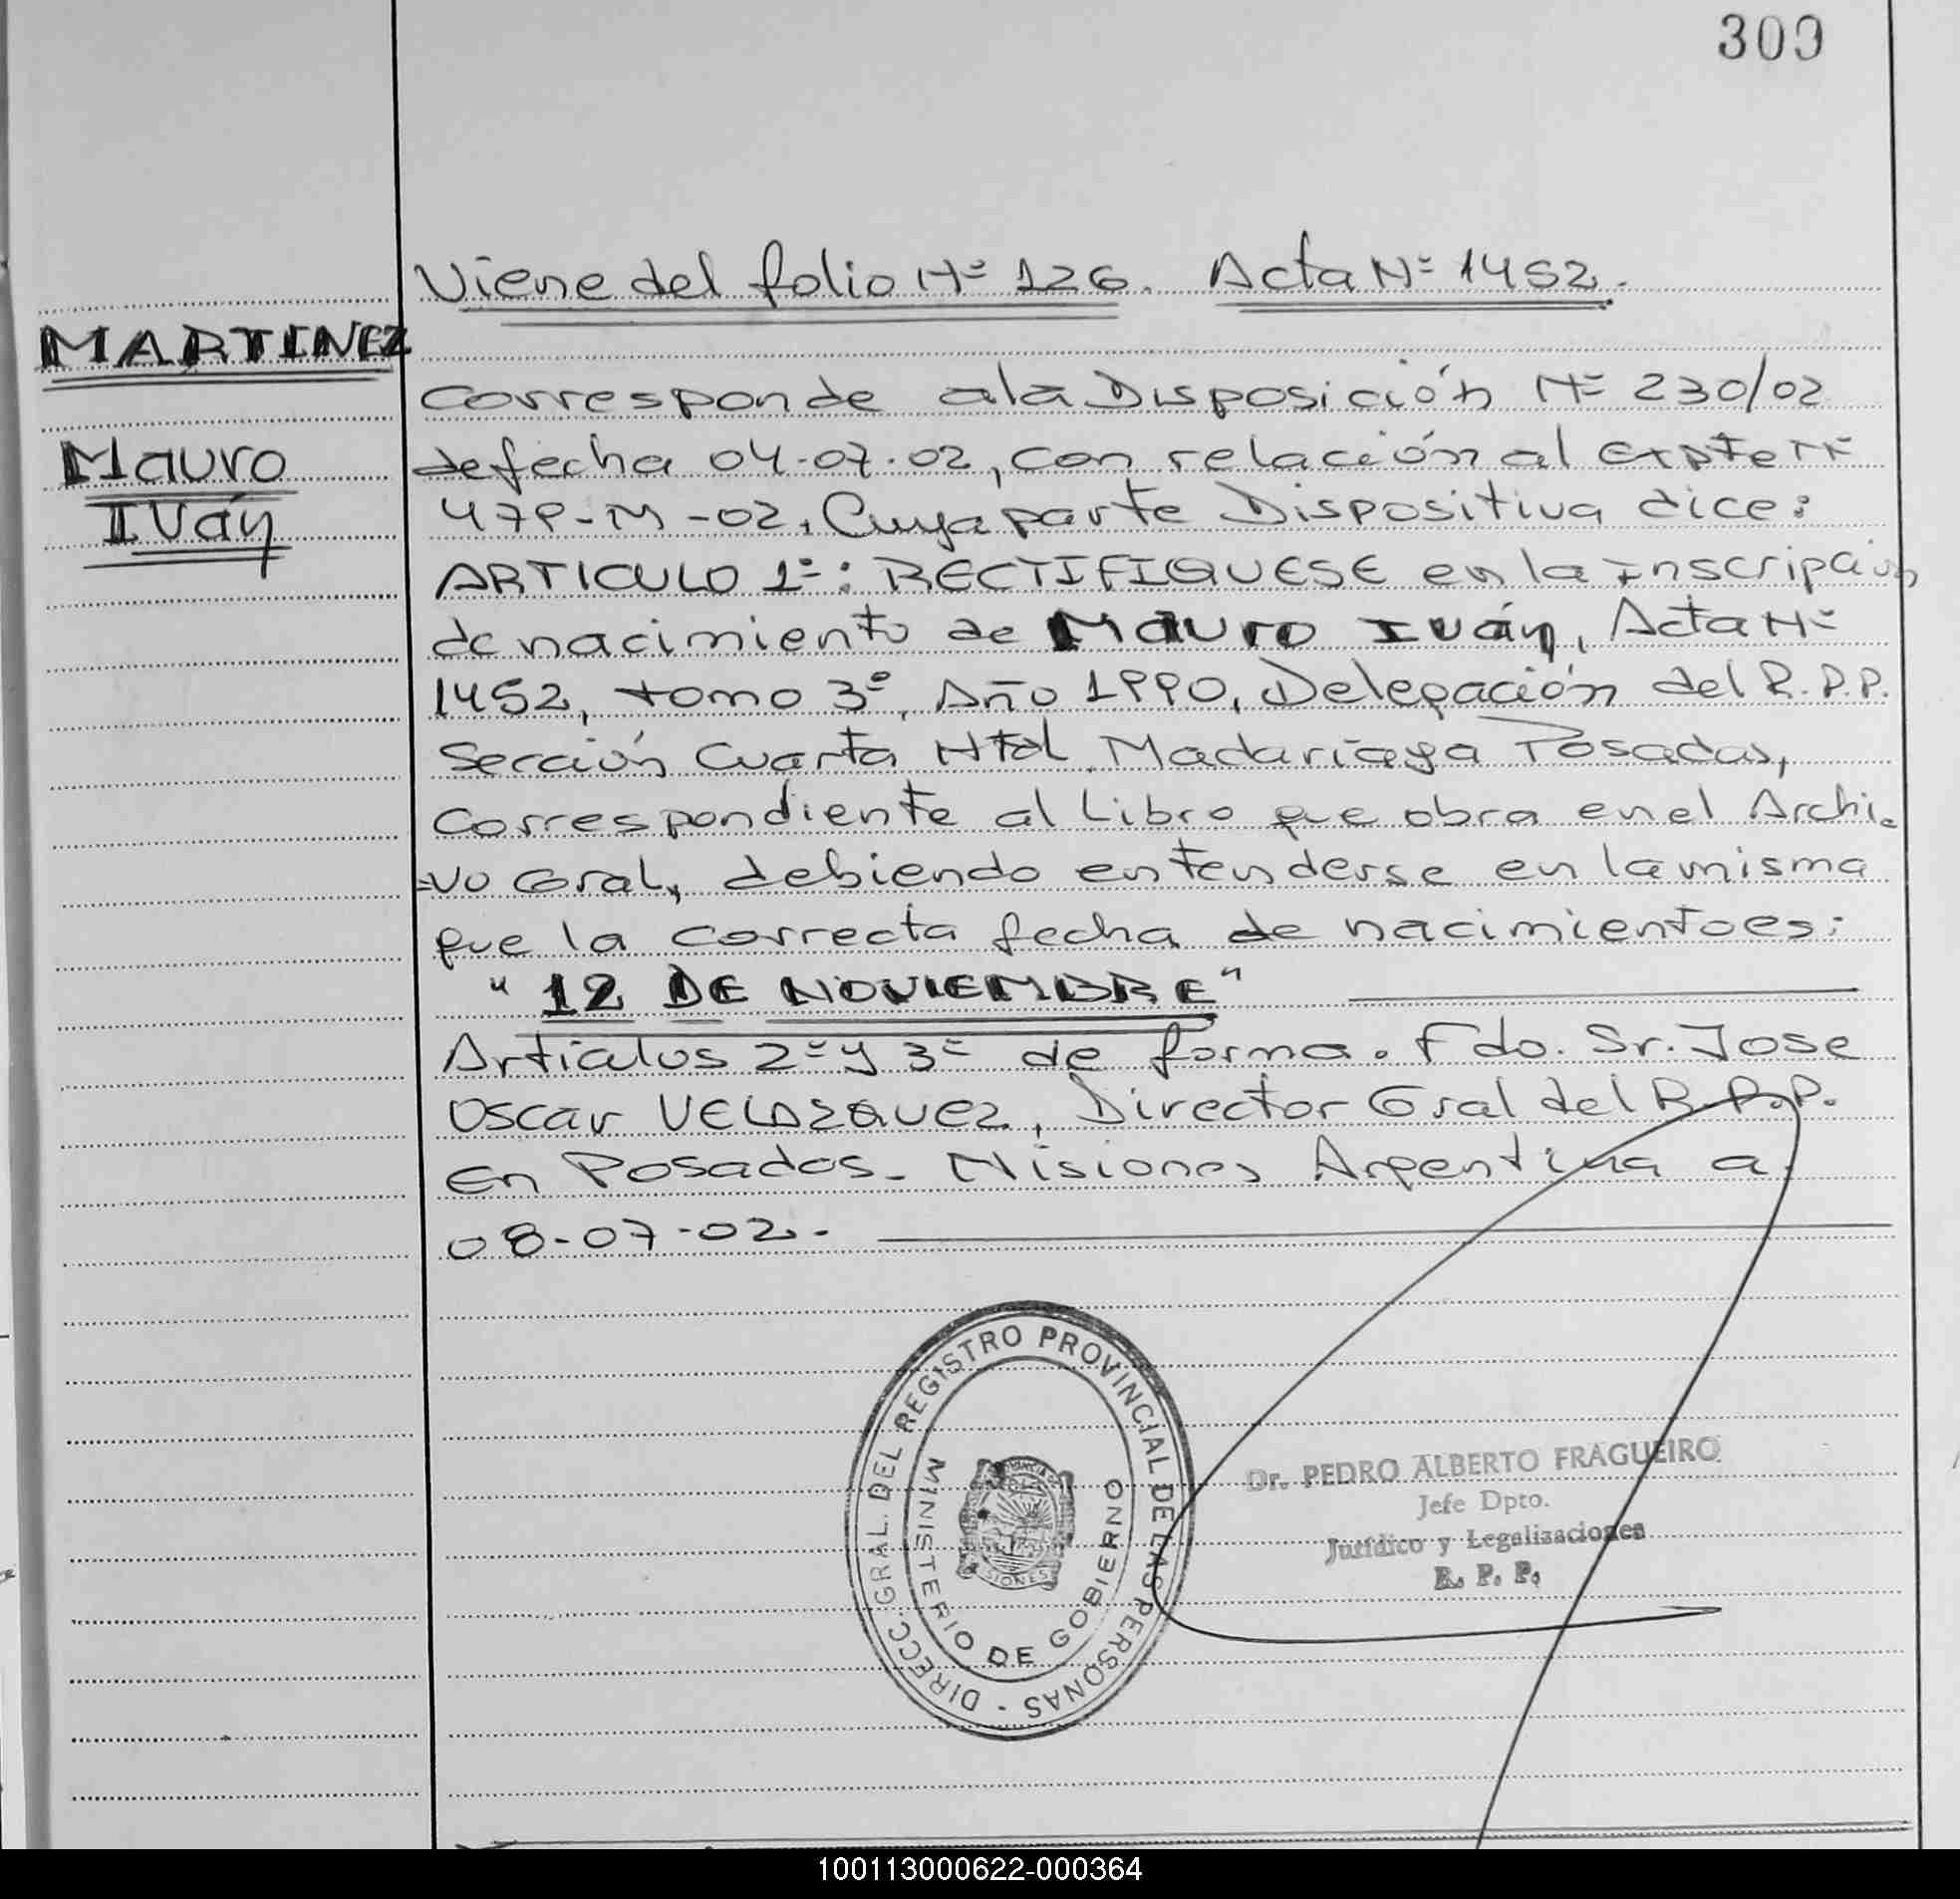 300
Viene del folio Nº 126. Acta Nº 1452.
MARTINEZ
Mauro
Iván
Corresponde a la Disposición Nº 230/02
de fecha 04-07-02, con relación al Expte Nº
479-M-02, Cuya parte Dispositiva dice:
ARTICULO 1º: RECTIFIQUESE en la Inscripción
de nacimiento de Mauro Iván, Acta Nº
1452, tomo 3º, Año 1990, Delegación del R.P.P.
Sección Cuarta Htal. Madariaga Posadas,
Correspondiente al Libro que obra en el Archi-
=vo Gral, debiendo entenderse en la misma
que la correcta fecha de nacimiento es:
"12 DE NOVIEMBRE"
Articulos 2º y 3º de forma. Fdo. Sr. Jose
Oscar VELAZQUEZ, Director Gral del R.P.P.
En Posadas - Misiones Argentina a
08-07-02.
DIRECC. GRAL. DEL REGISTRO PROVINCIAL DE LAS PERSONAS -
MINISTERIO DE GOBIERNO
Dr. PEDRO ALBERTO FRAGUEIRO
Jefe Dpto.
Jurídico y Legalizaciones
R. P. P.
100113000622-000364